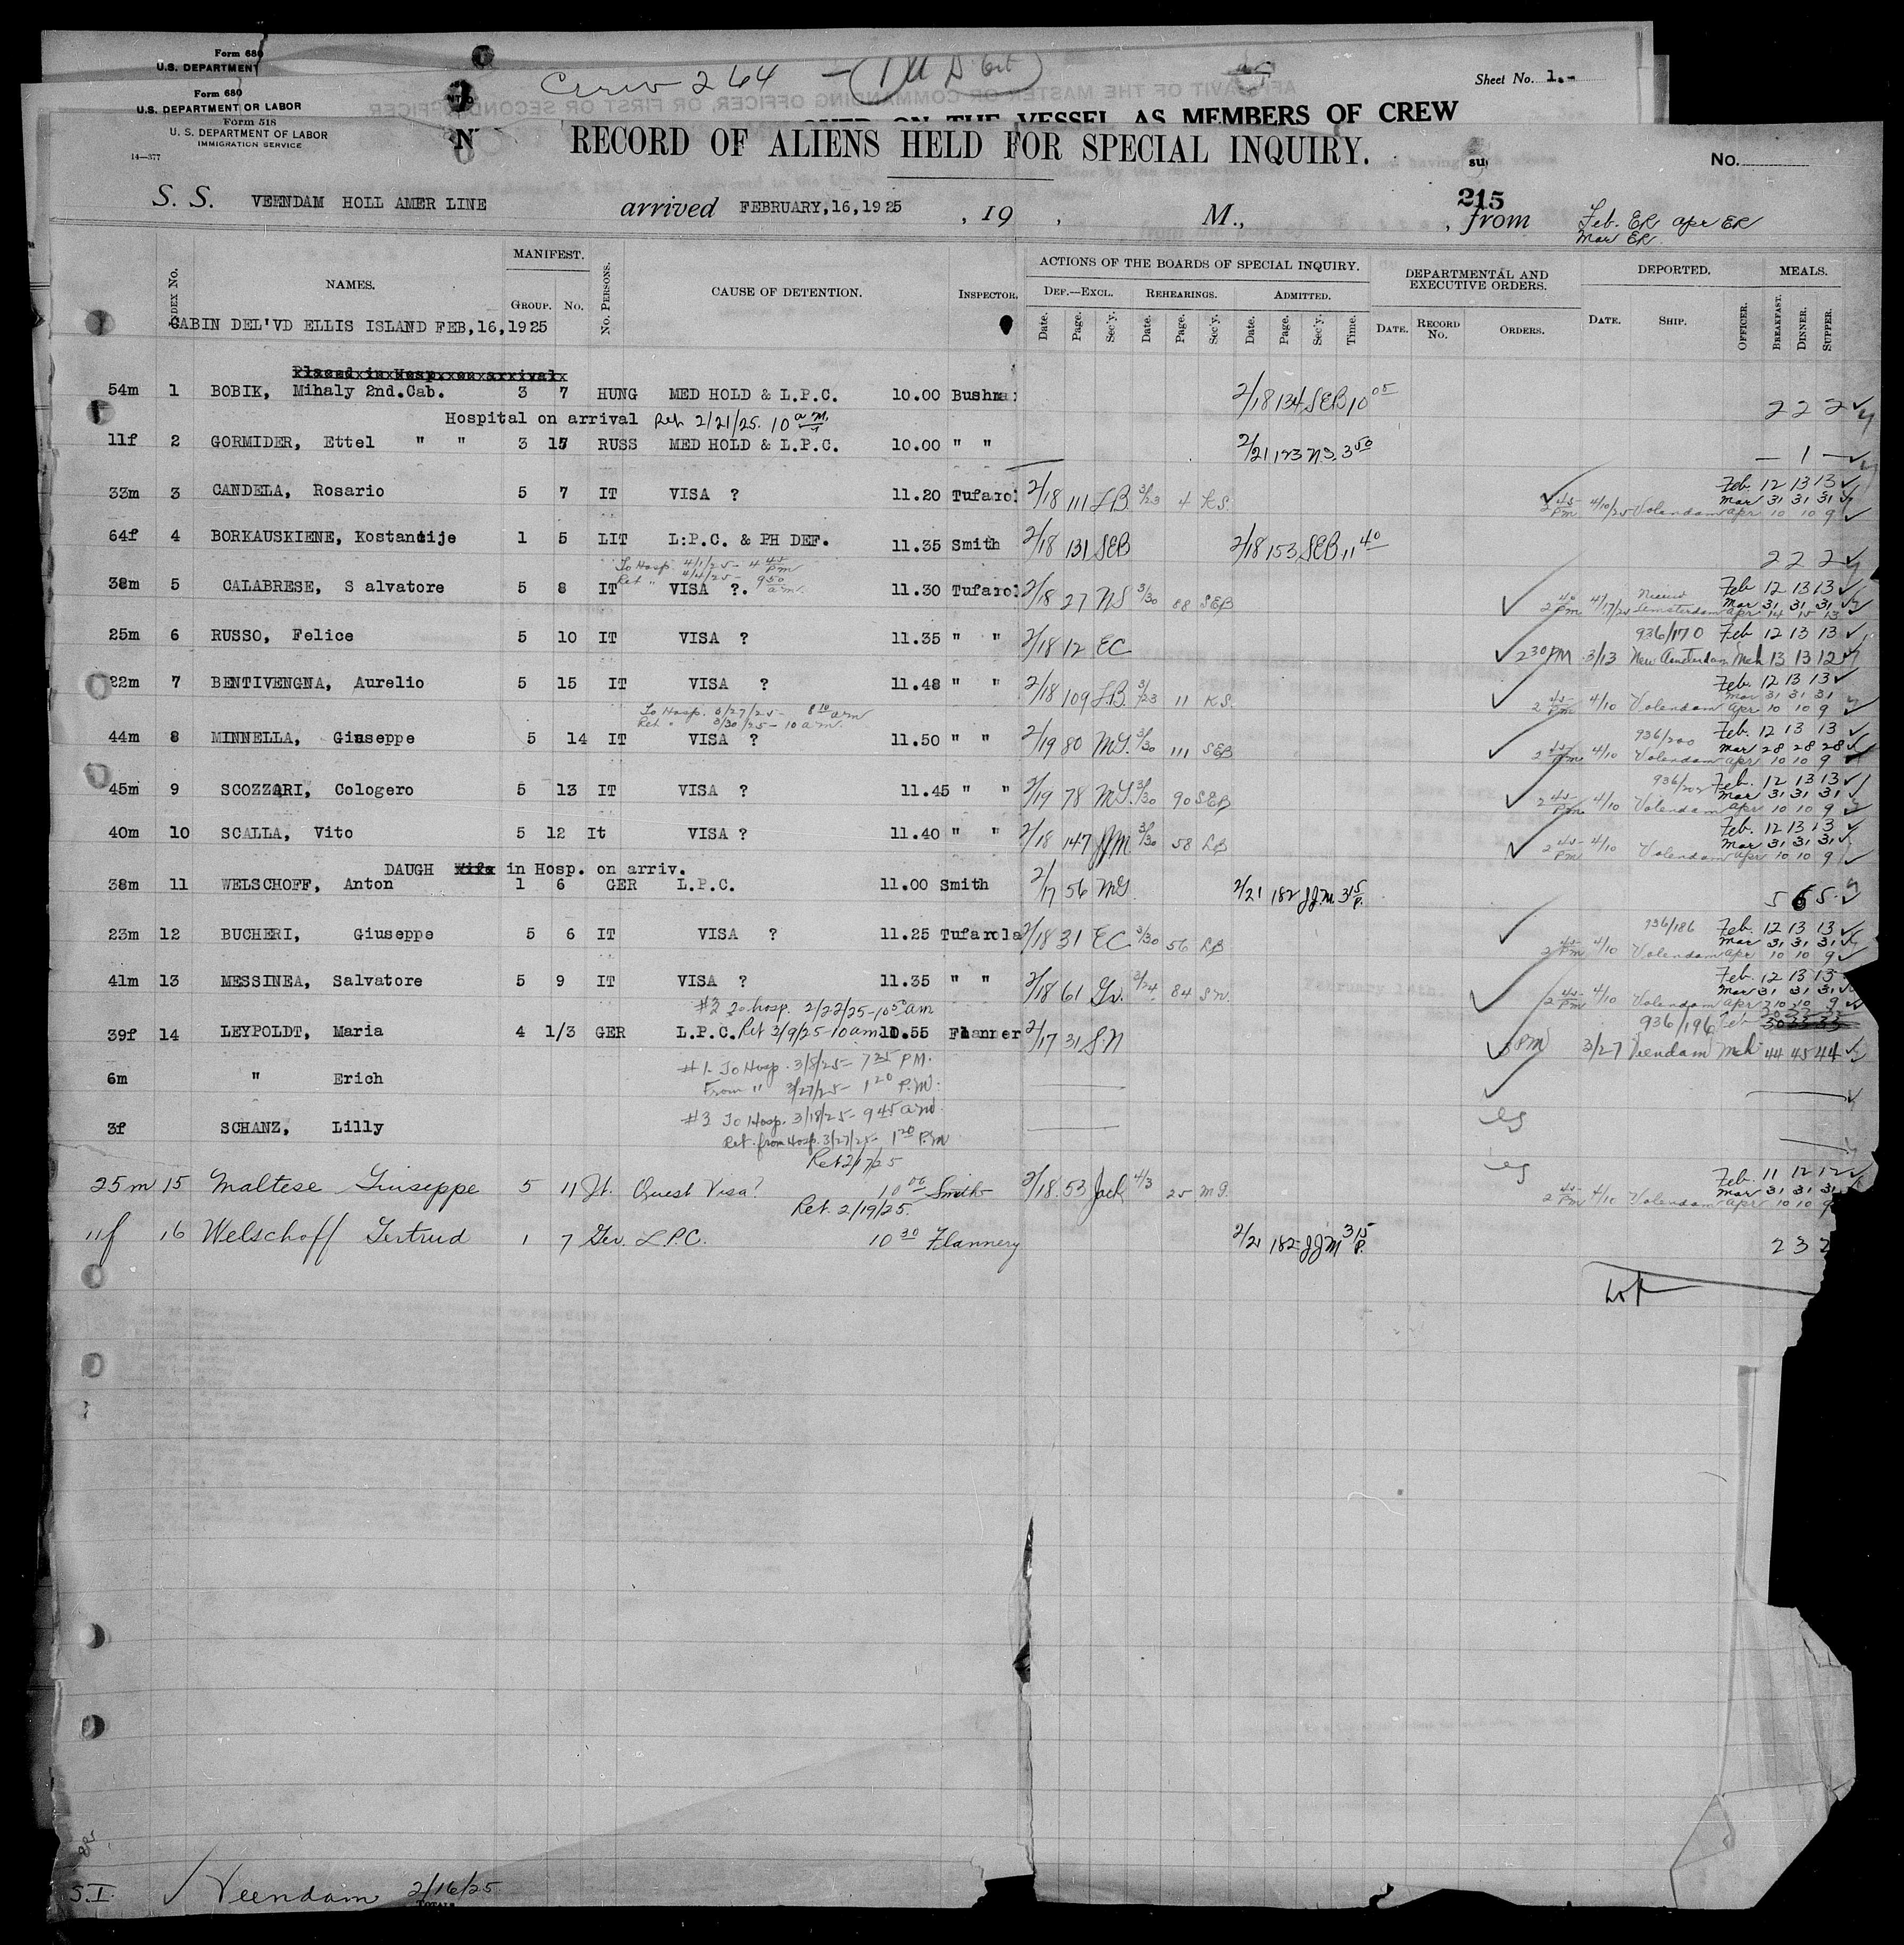 Form 680
U.S. DEPARTMENT
Form 680
U.S. DEPARTMENT OR LABOR
Form 518
U. S. DEPARTMENT OF LABOR
IMMIGRATION SERVICE
14—377
Crew 264
Sheet No. 1.-
VESSEL AS MEMBERS OF CREW
RECORD OF ALIENS HELD FOR SPECIAL INQUIRY.
No.
S. S. VEENDAM HOLL AMER LINE arrived FEBRUARY,16,1925 , 19 , M., 215 , from
Feb. ER Apr ER
Mar ER.
INDEX No. NAMES. MANIFEST. GROUP. No. No. PERSONS. CAUSE OF DETENTION. INSPECTOR.
ACTIONS OF THE BOARDS OF SPECIAL INQUIRY. DEF.—EXCL. REHEARINGS. ADMITTED.
Date. Page. Sec'y. Date. Page. Sec'y. Date. Page. Sec'y. Time.
DEPARTMENTAL AND EXECUTIVE ORDERS. DATE. RECORD No. ORDERS.
DEPORTED. DATE. SHIP. OFFICER. MEALS. BREAKFAST. DINNER. SUPPER.
CABIN DEL'VD ELLIS ISLAND FEB,16,1925
Placed in Hosp. on arrival
54m 1 BOBIK, Mihaly 2nd.Cab. 3 7 HUNG MED HOLD & L.P.C. 10.00 2/18 134 SEB 10 05 2 2 2
Hospital on arrival Ret 2/21/25. 10 a.m.
11f 2 GORMIDER, Ettel " " 3 15 RUSS MED HOLD & L.P.C. 10.00 " " 2/21 123 N.S. 3 50 — 1 —
33m 3 CANDELA, Rosario 5 7 IT VISA ? 11.20 Tufarol 2/18 111 LB 3/23 4 K.S. 2 45 PM 4/10/25 Volendam
Feb. 12 13 13
Mar 31 31 31
Apr 10 10 9
64f 4 BORKAUSKIENE, Kostancije 1 5 LIT L:P.C. & PH DEF. 11.35 Smith 2/18 131 SEB 2/18 153 SEB 11 40 2 2 2
To Hosp. 4/1/25 - 4 45 PM
Ret " 4/4/25 - 9 50 a.m.
38m 5 CALABRESE, S alvatore 5 8 IT VISA ?. 11.30 Tufarol 2/18 27 NS 3/30 88 SEB 2 40 PM
Feb 12 13 13
Mar 31 31 31
Apr 14 15 13
25m 6 RUSSO, Felice 5 10 IT VISA ? 11.35 " " 2/18 12 EC 2 30 PM 3/13 New Amsterdam
936/170 Feb 12 13 13
Mch 13 13 12
22m 7 BENTIVENGNA, Aurelio 5 15 IT VISA ? 11.48 " " 2/18 109 LB 3/23 11 K.S. 2 45 PM 4/10 Volendam
Feb. 12 13 13
Mar 31 31 31
Apr 10 10 9
To Hosp. 3/27/25 - 8 10 am
Ret " 3/30/25 - 10 a.m.
44m 8 MINNELLA, Giuseppe 5 14 IT VISA ? 11.50 " " 2/19 80 MG. 3/30 111 SEB 2 45 PM 4/10 Volendam
936/200 Feb. 12 13 13
Mar 28 28 28
Apr 10 10 9
45m 9 SCOZZARI, Cologero 5 13 IT VISA ? 11.45 " " 2/19 78 MG. 3/30 90 SEB 2 45 PM 4/10 Volendam
Feb. 12 13 13
Mar 31 31 31
Apr 10 10 9
40m 10 SCALLA, Vito 5 12 It VISA ? 11.40 " " 2/18 147 JJM 3/30 58 LB 2 45 PM 4/10 Volendam
Feb. 12 13 13
Mar 31 31 31
Apr 10 10 9
DAUGH Wife in Hosp. on arriv.
38m 11 WELSCHOFF, Anton 1 6 GER L.P.C. 11.00 Smith 2/17 56 MG 2/21 182 JJM 3 15 P. 5 6 5
23m 12 BUCHERI, Giuseppe 5 6 IT VISA ? 11.25 Tufarola 2/18 31 EC 3/30 56 LB 2 45 PM 4/10 Volendam
936/186 Feb. 12 13 13
Mar 31 31 31
Apr 10 10 9
41m 13 MESSINEA, Salvatore 5 9 IT VISA ? 11.35 " " 2/18 61 Gr. 3/24 84 S.N. 2 45 PM 4/10 Volendam
Feb. 12 13 13
Mar 31 31 31
Apr 10 10 9
#2 To hosp. 2/22/25-10 05 am
39f 14 LEYPOLDT, Maria 4 1/3 GER L.P.C. Ret 3/9/25-10am 10.55 Flanner 2/17 31 S.N 3 PM 3/27 Veendam
936/196 Feb
Mch 44 45 44
#1. To Hosp. 3/8/25 - 7 35 PM.
6m " Erich
From " 3/27/25 - 1 20 P.M.
#3 To Hosp. 3/18/25 - 9 45 am.
3f SCHANZ, Lilly
Ret. from Hosp. 3/27/25 - 1 20 P.M
Ret 2/17/25
25m 15 Maltese Giuseppe 5 11 It. Quest Visa? 10 00 Smith 2/18. 53 Jack 4/3 25 M.G. 2 45 PM 4/10 Volendam
Feb. 11 12 12
Mar 31 31 31
Apr 10 10 9
Ret. 2/19/25.
11f 16 Welschoff Gertrud 1 7 Ger. L.P.C. 10 30 Flannery 2/21 182 JJM 3 15 P. 2 3 2
S.I. Veendam 2/16/25
TOTALS